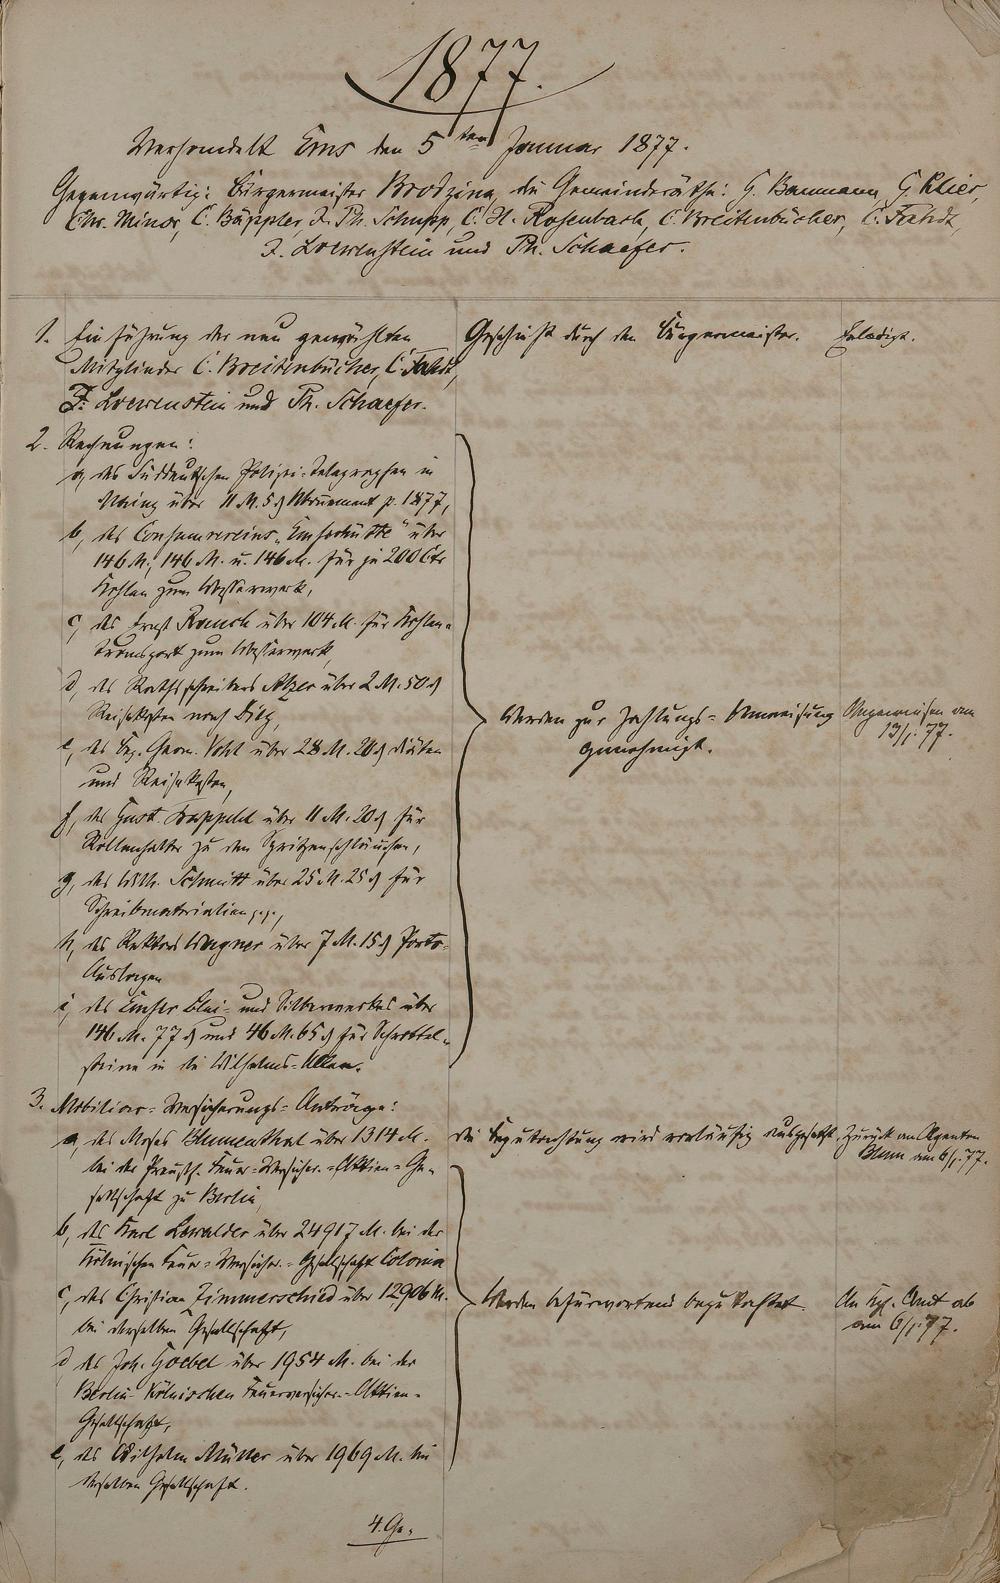 1877.
Verhandelt Ems den 5ten Januar 1877.
Gegenwärtig: Bürgermeister Brodzina, die Gemeinderäthe: G. Baumann, G Klier,
Chr. Minor, C. Bäppler, J. Ph. Schupp, C. H. Rosenbach, C. Breitenbücher, C. Fahdt,
J. Loewenstein und Ph. Schaefer.
1. Einführung der neu gewählten
Mitglieder C. Breitenbücher, C. Fahdt,
J. Loewenstein und Ph. Schaefer.
Geschieht durch den Bürgermeister.
Erledigt.
2. Rechnungen:
a, des Süddeutschen Polizei-Telegraphen in
Mainz über 11 M. 5 ₰ Abonnement p. 1877,
b, des Consumvereins „Emserhütte" über
146 M., 146 M. u. 146 M. für je 200 Ctr
Kohlen zum Wasserwerk,
c, des Ernst Rauch über 104 M. für Kohlen-
transport zum Wasserwerk,
d, des Rathsschreibers über 2 M. 50 ₰
Reisekosten nach Diez,
e, des Geom. Vohl über 28 M. 20 ₰ Diäten
und Reisekosten,
f, des Gust. über 11 M. 20 ₰ für
Rollenhalter zu den Spritzenschläuchen,
g, des Wilh. Schmitt über 25 M. 25 ₰ für
Schreibmaterialien p.p.,
h, des Rektors Wagner über 7 M. 15 ₰ Porto-
Auslagen
i, des Emser Blei- und Silberwerkes über
146 M. 77 ₰ und 46 M. 65 ₰ für
steine in die Wilhelms-Allee.
Werden zur Zahlungs-Anweisung
genehmigt.
Angewiesen am
13/1. 77.
3. Mobiliar-Versicherungs-Anträge:
a, des Moses Blumenthal über 1314 M.
bei der Preuß. Feuer-Versicher.-Aktien-Ge-
sellschaft zu Berlin,
Die Begutachtung wird vorläufig ausgesetzt.
Zurück an Agenten
Blum am 6/1. 77.
b, des Karl Lewalder über 24917 M. bei der
Kölnischen Feuer-Versicher.-Gesellschaft Colonia
c, des Christian Zimmerschied über 12,906 M.
bei derselben Gesellschaft,
d, des Joh. Goebel über 1954 M. bei der
Berlin-Kölnischen Feuerversicher.-Aktien-
Gesellschaft,
e, des Wilhelm Müller über 1969 M. bei
derselben Gesellschaft.
Werden befürwortend begutachtet.
An Kgl. Amt ab
am 6/1. 77.
4. Ge-